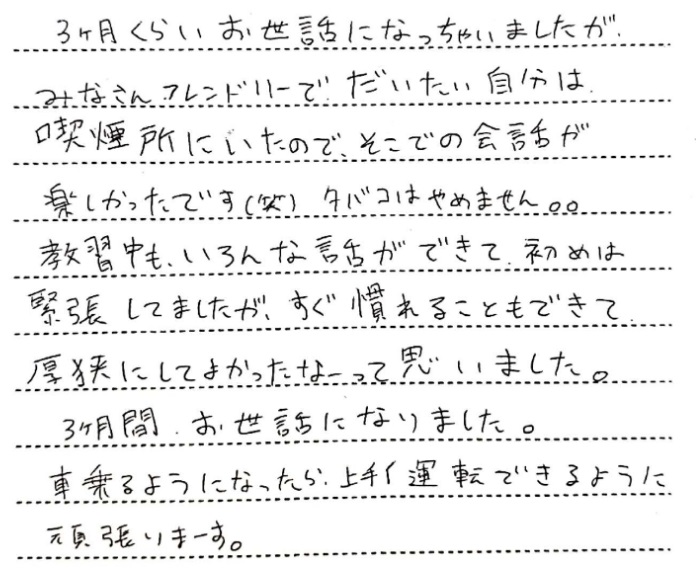 3ヶ月くらいお世話になっちゃいましたが、
みなさんフレンドリーで、だいたい自分は、
喫煙所にいたので、そこでの会話が
楽しかったです(笑) タバコはやめません。。
教習中も、いろんな話ができて、初めは
緊張してましたが、すぐ慣れることもできて、
厚狭にしてよかったなーって思いました。
3ヶ月間、お世話になりました。
車乗るようになったら、上手く運転できるように
頑張りまーす。